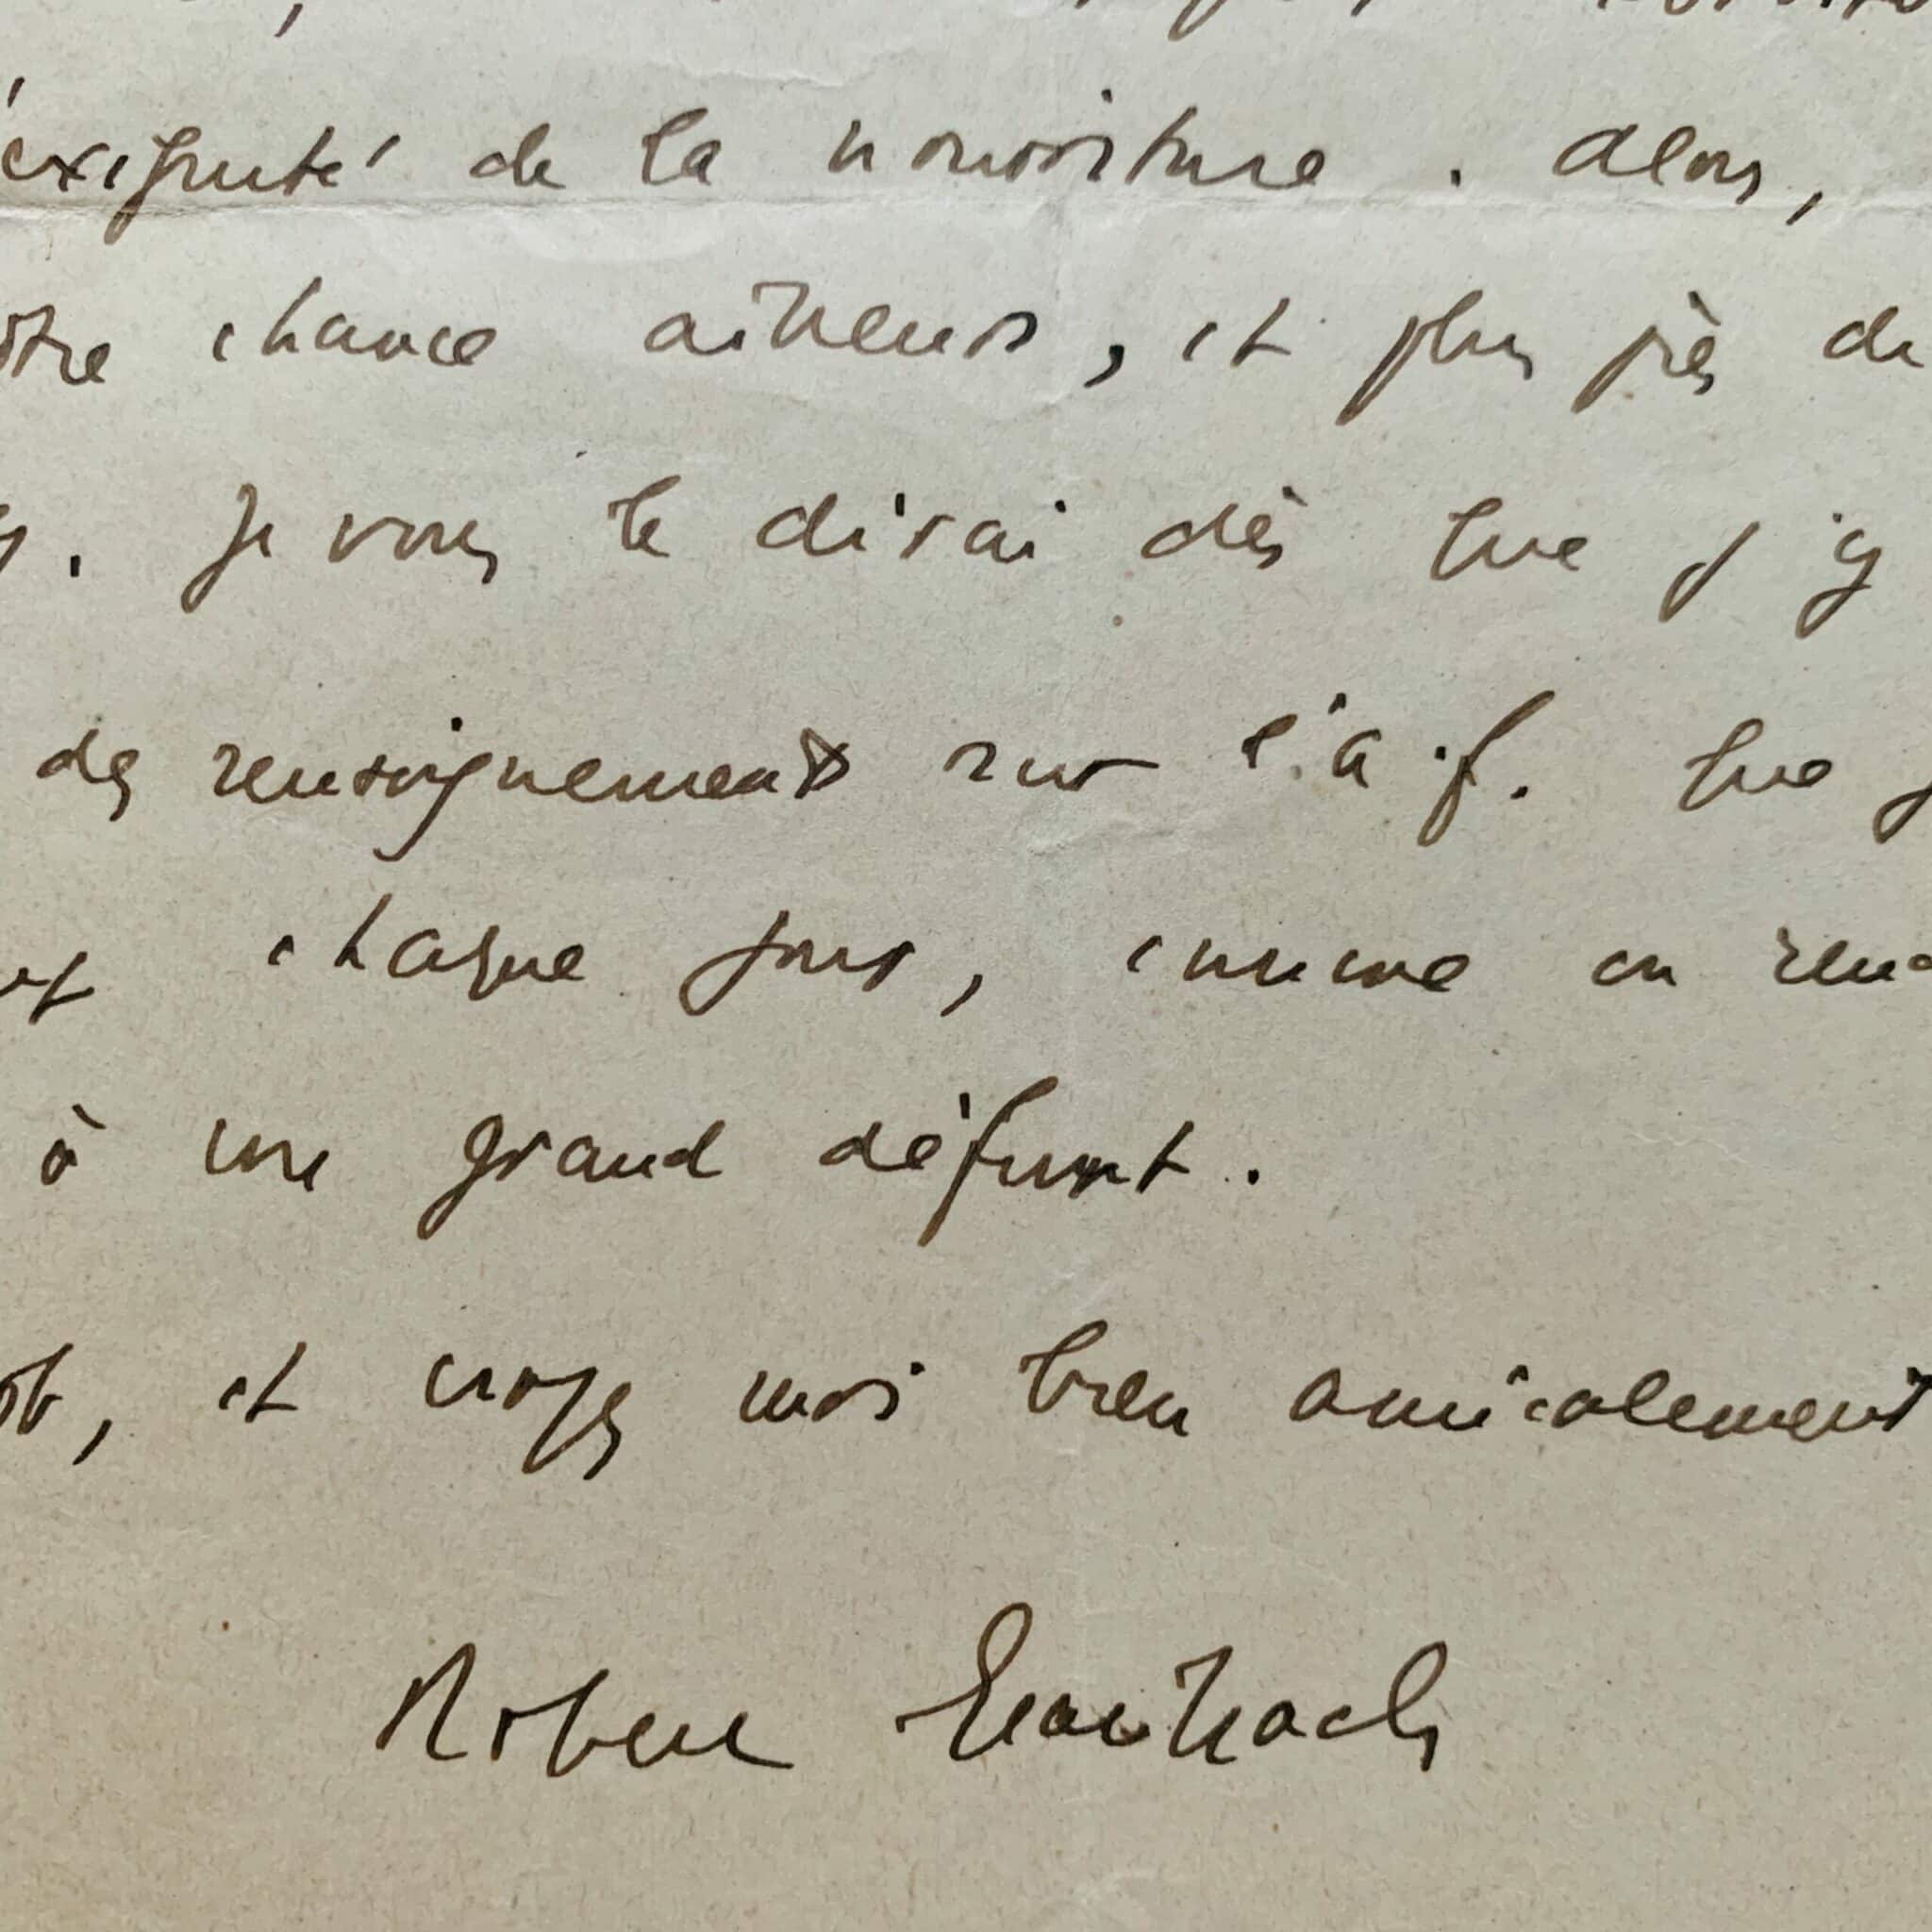 l'exiguïté de la nourriture. Alors,
chance ailleurs, et plus près de
. Je vous le dirai dès que j'y
des renseignements sur l'a.f. que j
chaque jour, comme on rend
à un grand défunt.
, et croyez moi bien amicalement
Robert Brasillach